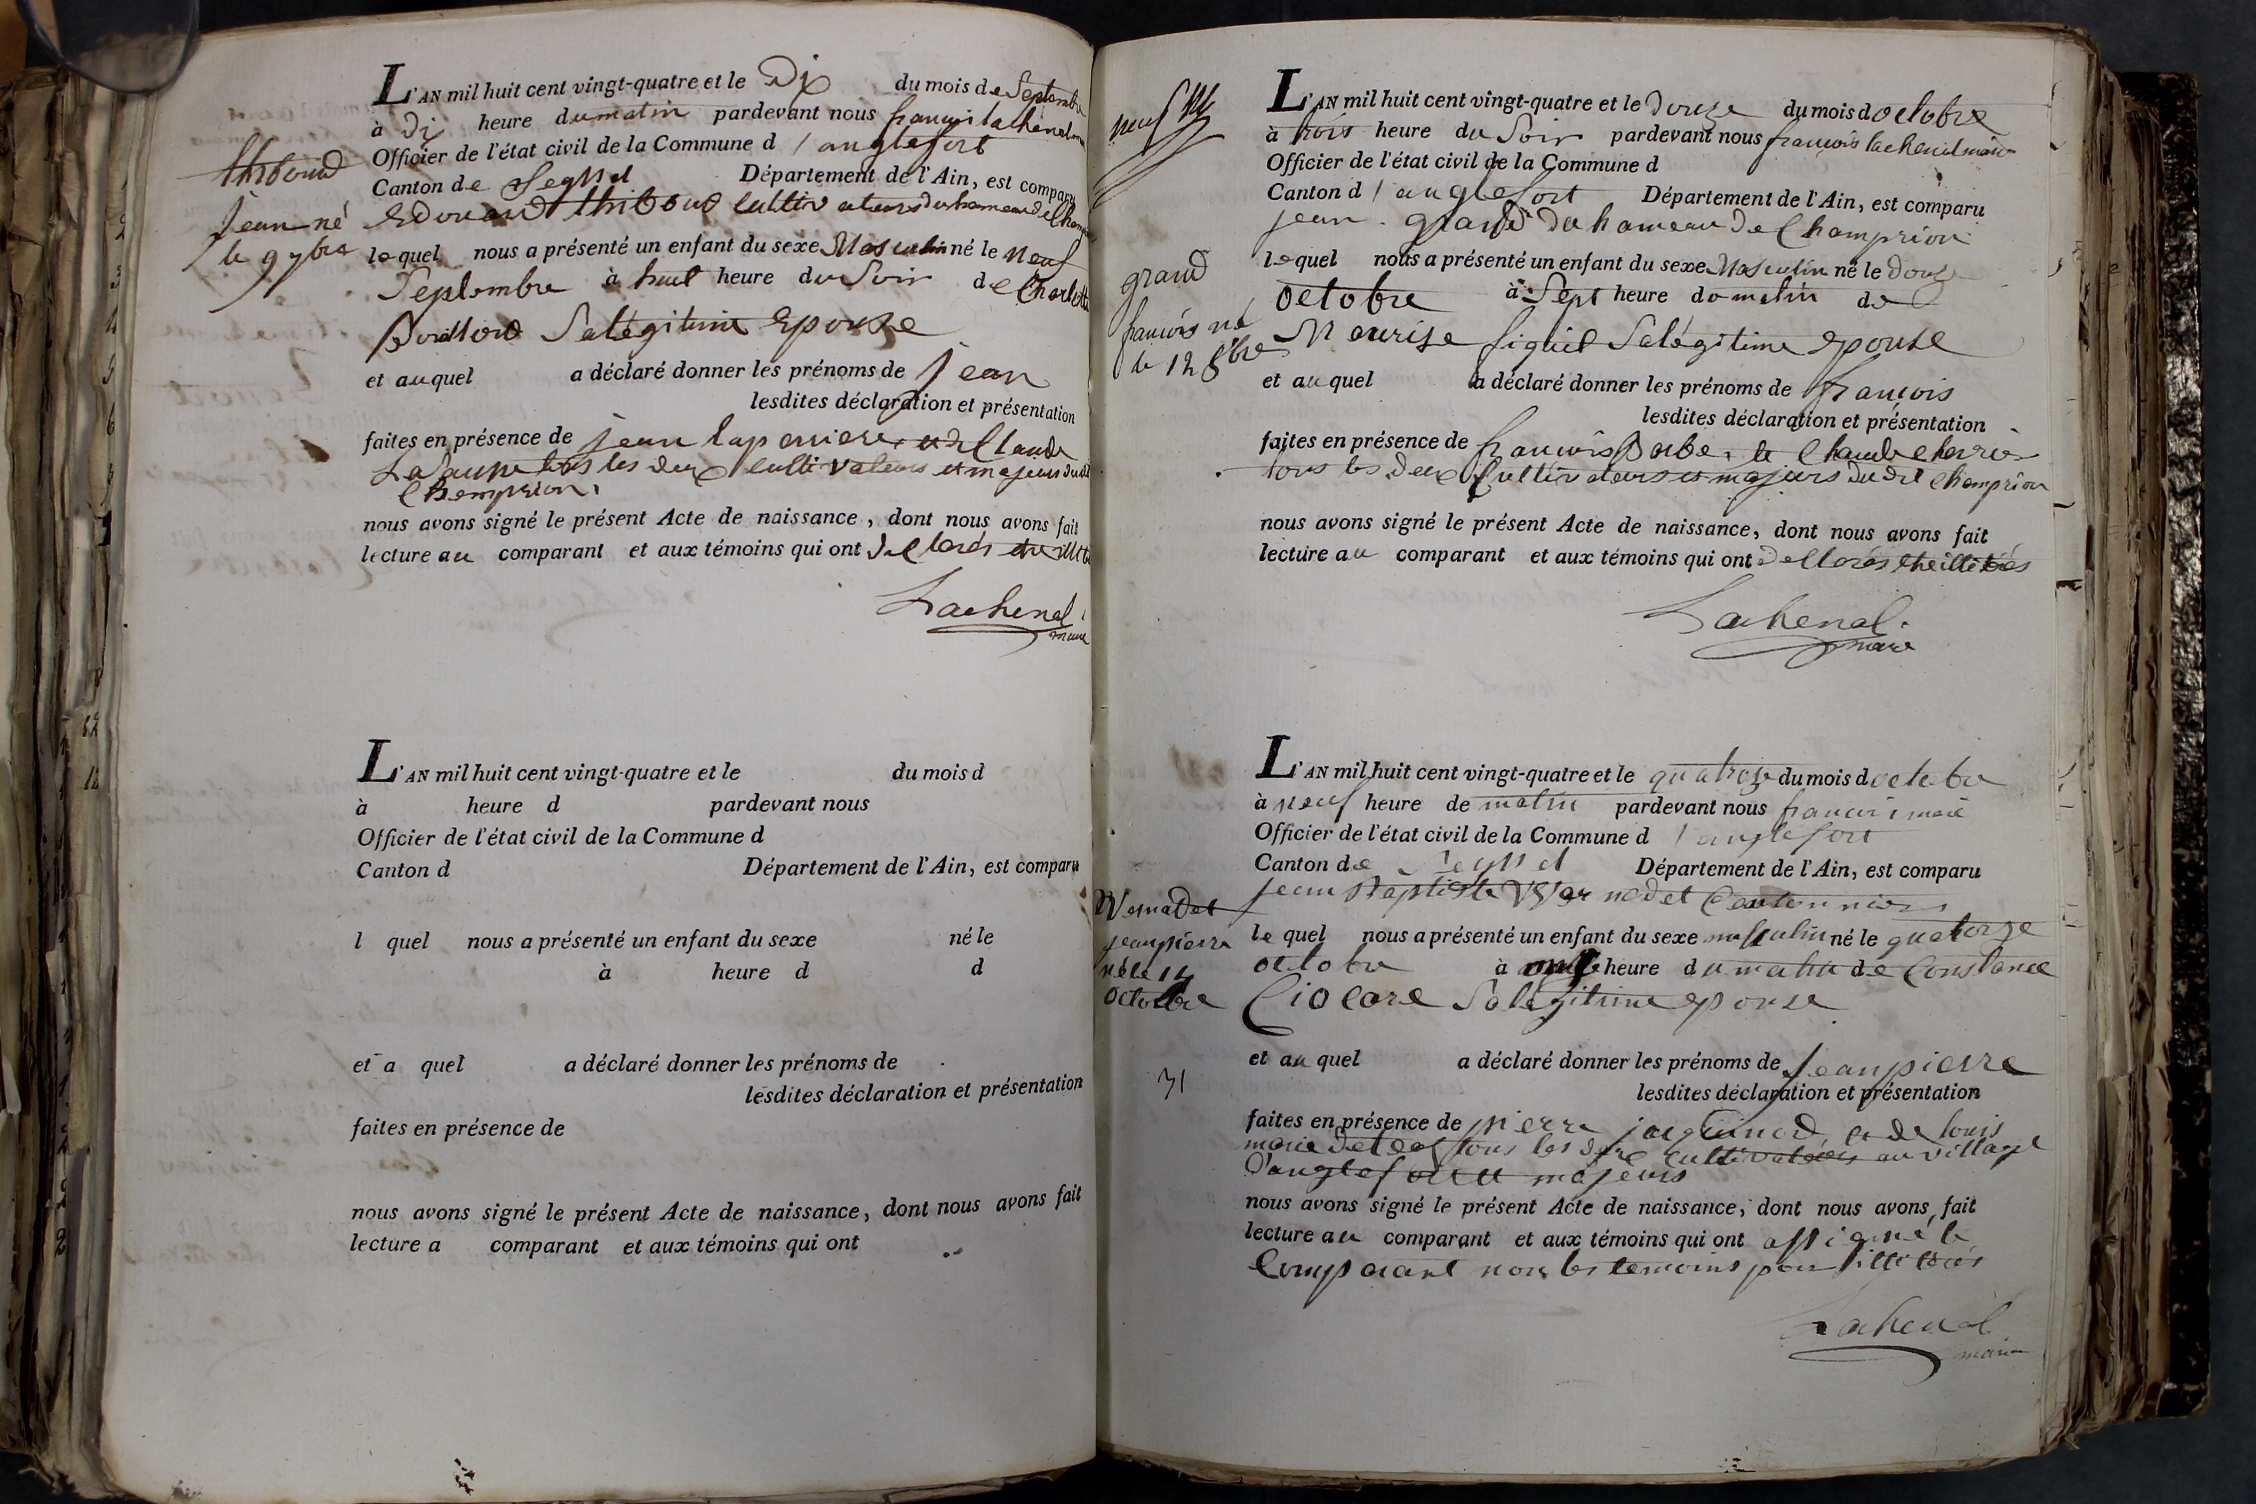 L'AN mil huit cent vingt-quatre et le Dix du mois de Septembre
à Dix heure du matin pardevant nous françois lachenal
Officier de l'état civil de la Commune d'anglefort
Canton de Seyssel Département de l'Ain, est comparu
Edouard thiboud Cultivateur du hameau de
lequel nous a présenté un enfant du sexe Masculin né le Neuf
Septembre à huit heure du Soir de Charlotte
Sa légitime Epouse
et auquel a déclaré donner les prénoms de jean
lesdites déclaration et présentation
faites en présence de jean et de Claude
tous les deux Cultivateurs et majeurs
Champrion
nous avons signé le présent Acte de naissance, dont nous avons fait
lecture au comparant et aux témoins qui ont
Lachenal
maire
thiboud
Jean né
le 9 7bre
L'AN mil huit cent vingt-quatre et le
du mois d
à heure d pardevant nous
Officier de l'état civil de la Commune d
Canton d Département de l'Ain, est comparu
l quel nous a présenté un enfant du sexe né le
à heure d d
et a quel a déclaré donner les prénoms de
lesdites déclaration et présentation
faites en présence de
nous avons signé le présent Acte de naissance, dont nous avons fait
lecture a comparant et aux témoins qui ont
L'AN mil huit cent vingt-quatre et le Douze du mois d octobre
à trois heure du Soir pardevant nous françois lachenal maire
Officier de l'état civil de la Commune d
Canton d'anglefort Département de l'Ain, est comparu
jean grand du hameau de Champrion
lequel nous a présenté un enfant du sexe Masculin né le Douze
octobre à Sept heure du matin de
Maurise Sa légitime epouse
et auquel a déclaré donner les prénoms de françois
lesdites déclaration et présentation
faites en présence de françois et Claude
tous les deux Cultivateurs et majeurs du dit Champrion
nous avons signé le présent Acte de naissance, dont nous avons fait
lecture au comparant et aux témoins qui ont
Lachenal
maire
grand
françois né
le 12 8bre
L'AN mil huit cent vingt-quatre et le quatorze du mois d octobre
à neuf heure de matin pardevant nous françois maire
Officier de l'état civil de la Commune d'anglefort
Canton de Seyssel Département de l'Ain, est comparu
jean Baptiste
le quel nous a présenté un enfant du sexe masculin né le quatorze
octobre à heure du matin de Constance
Sa légitime epouse
et au quel a déclaré donner les prénoms de Jeanpierre
lesdites déclaration et présentation
faites en présence de pierre et de louis
tous les deux Cultivateurs au village
D'anglefort et majeurs
nous avons signé le présent Acte de naissance, dont nous avons fait
lecture au comparant et aux témoins qui ont le
Comparant non les temoins pour illiterés
Lachenal
maire
jeanpierre
né le 14
octobre
31